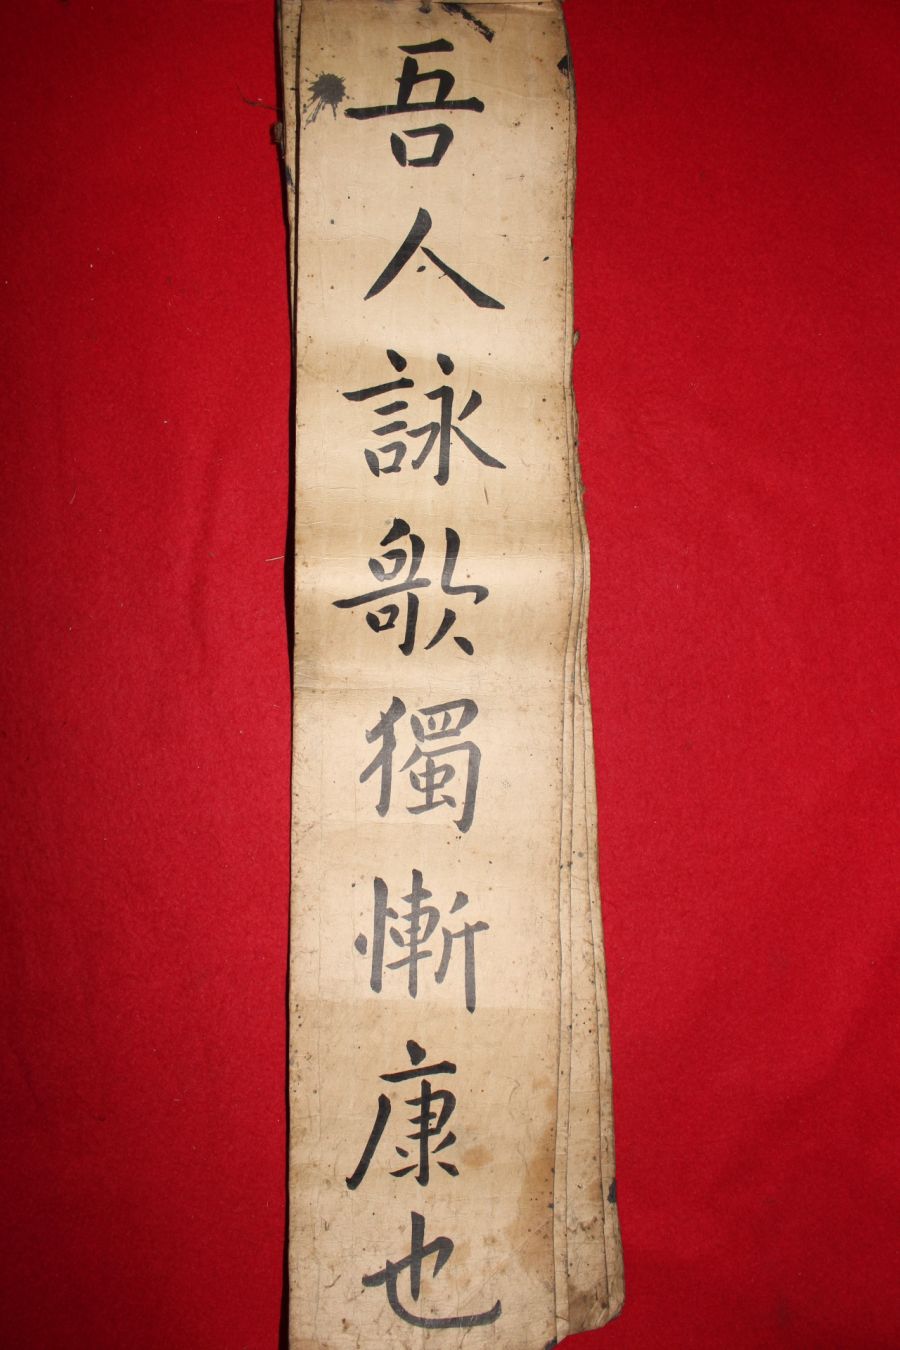 吾人詠歌獨慚康也